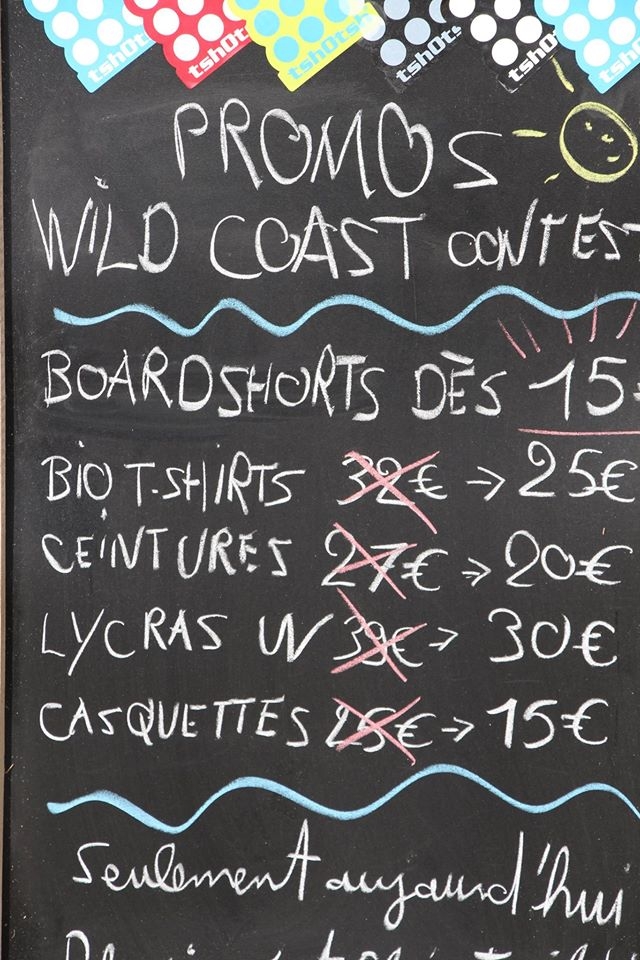 tsh0t tsh0t tsh0tsh tsh0ts tsh0t tsh0ts
PROMOS
WILD COAST CONTEST
BOARDSHORTS DÈS 15
BIO T-SHIRTS 32€ → 25€
CEINTURES 27€ → 20€
LYCRAS UV 39€ → 30€
CASQUETTES 25€ → 15€
Seulement aujourd'hui